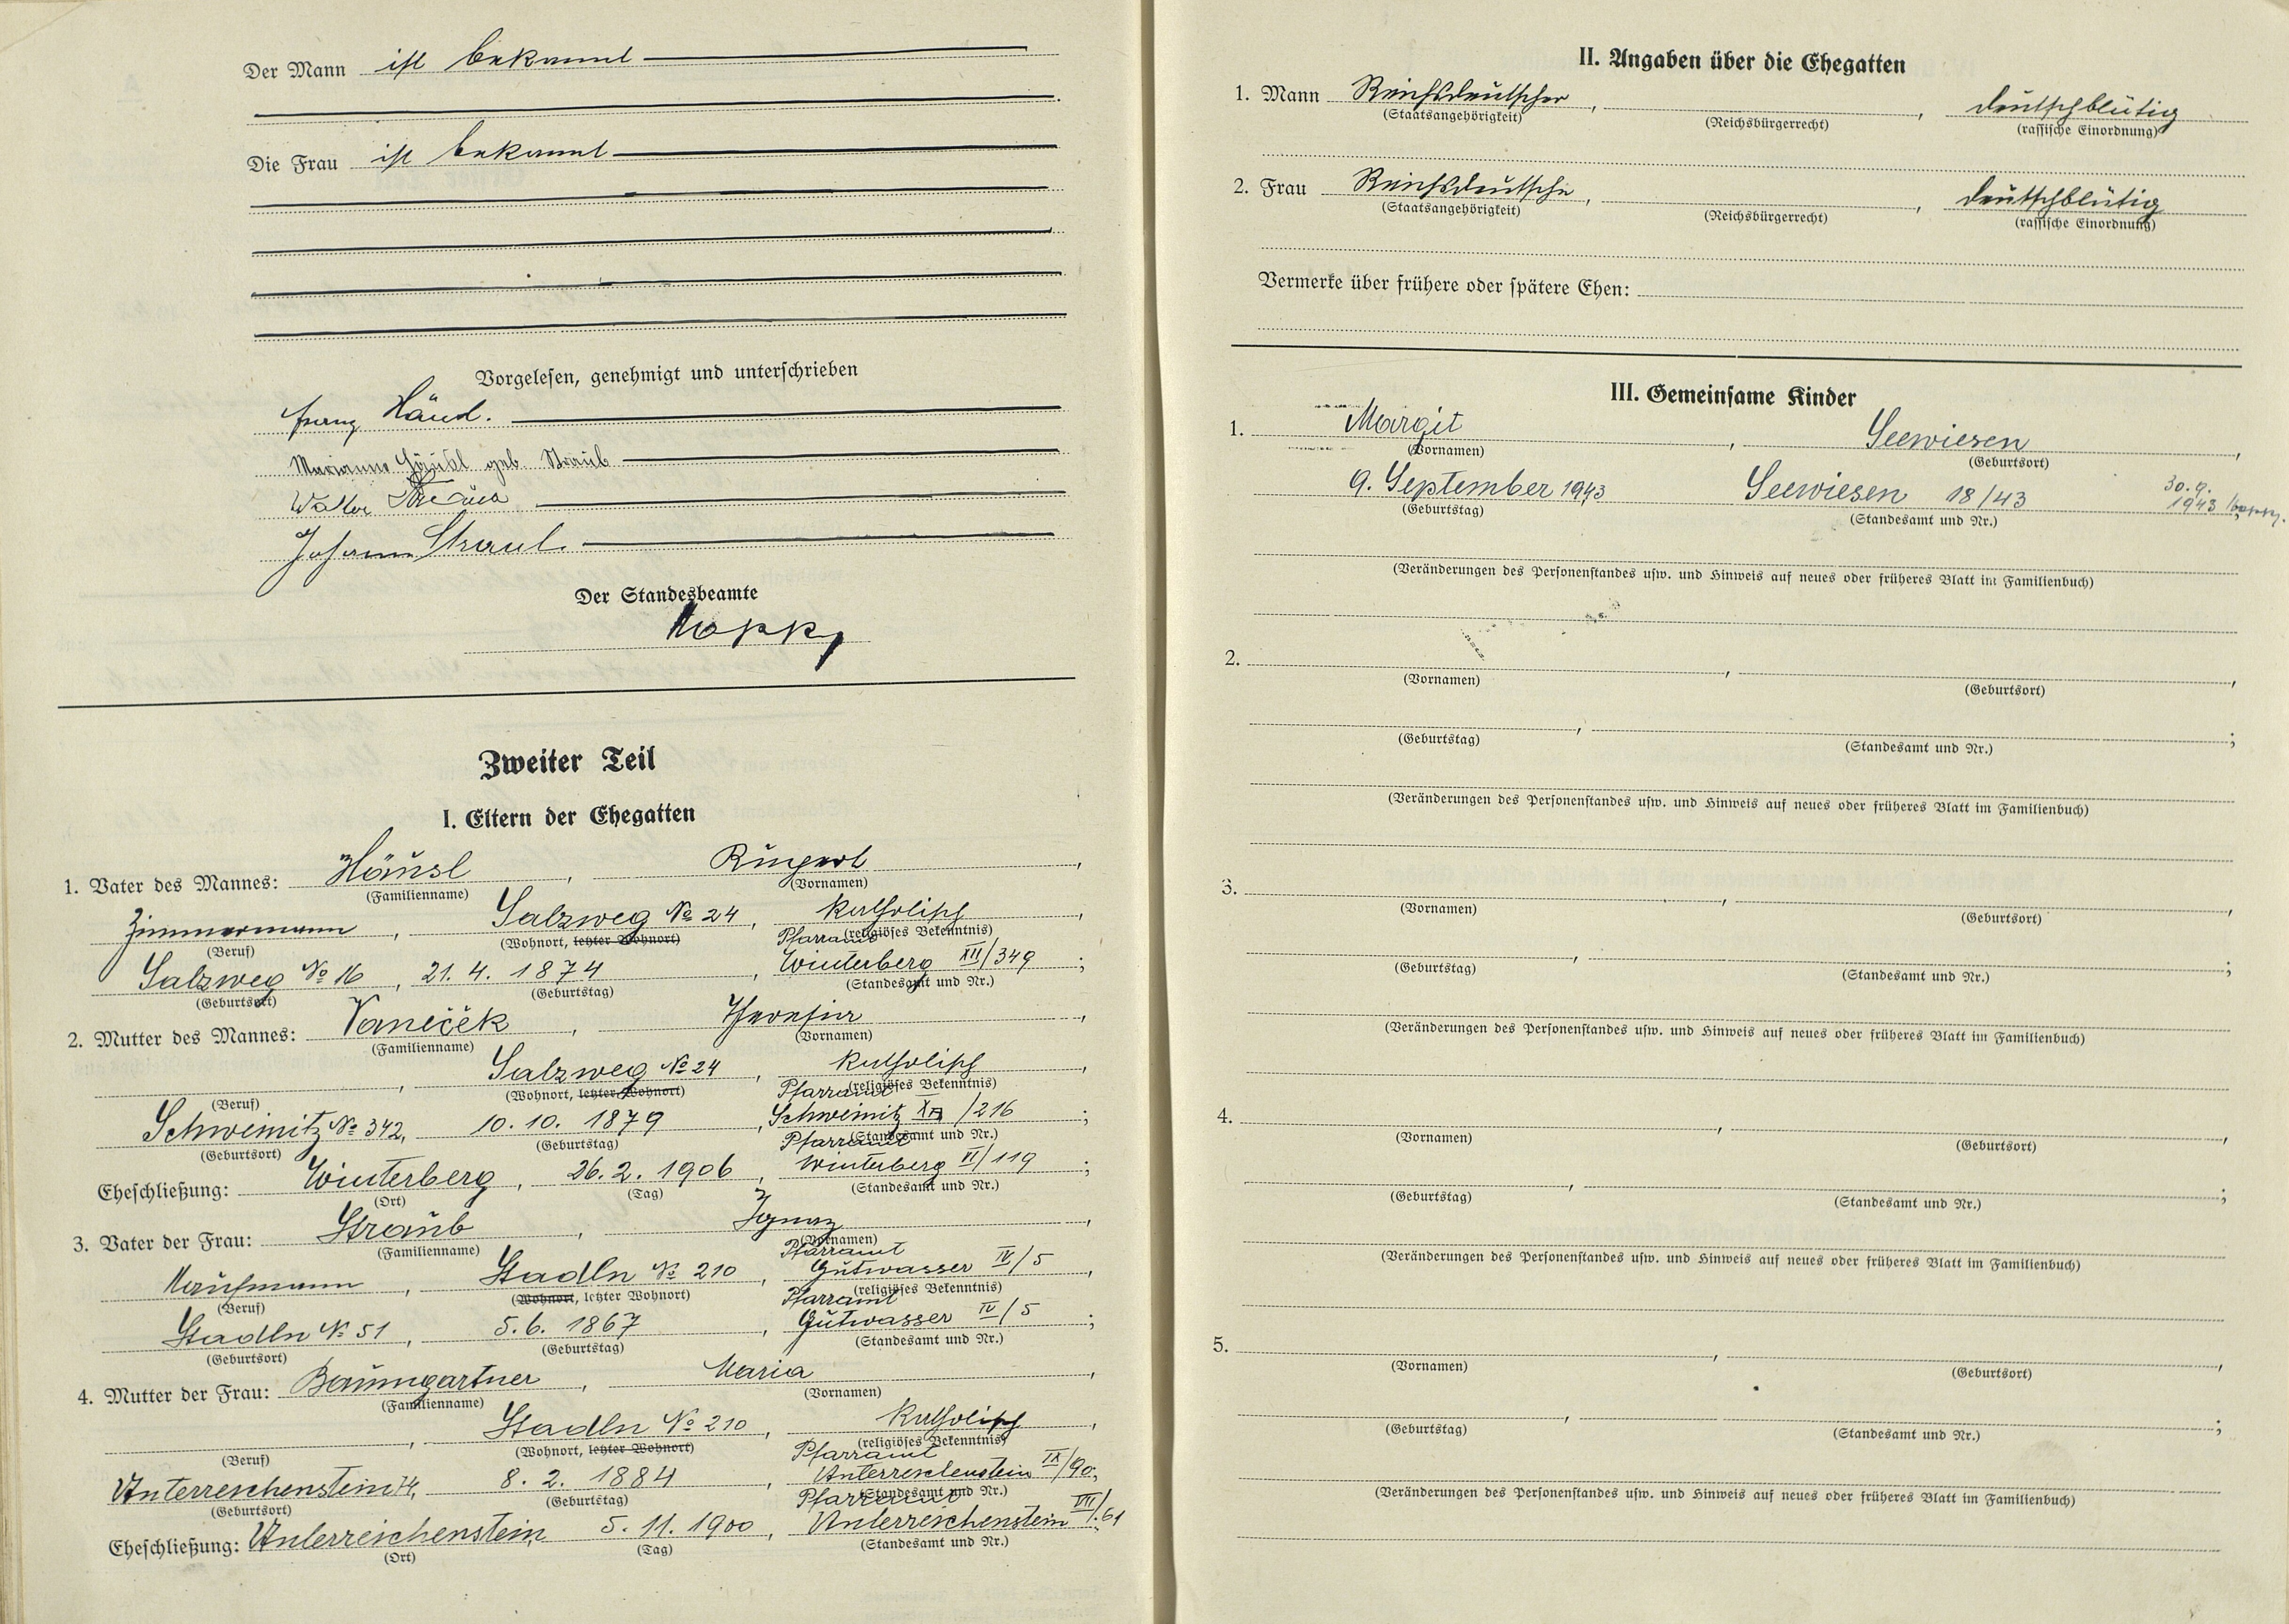 Der Mann ist bekannt
Die Frau ist bekannt
Vorgelesen, genehmigt und unterschrieben
Franz
Marianne geb. Straub
Walter
Johann Straub
Der Standesbeamte
Zweiter Teil
I. Eltern der Ehegatten
1. Vater des Mannes: Häusl, Rupert,
(Familienname) (Vornamen)
Zimmermann, Salzweg № 24, katholisch,
(Beruf) (Wohnort, letzter Wohnort) (religiöses Bekenntnis)
Pfarramt
Salzweg № 16, 21. 4. 1874, Winterberg XII/349;
(Geburtsort) (Geburtstag) (Standesamt und Nr.)
2. Mutter des Mannes: Vaneček, Theresia,
(Familienname) (Vornamen)
Salzweg № 24, katholisch,
(Beruf) (Wohnort, letzter Wohnort) (religiöses Bekenntnis)
Pfarramt
Schweinitz № 342, 10. 10. 1879, Schweinitz /216;
(Geburtsort) (Geburtstag) (Standesamt und Nr.)
Pfarramt
Eheschließung: Winterberg, 26. 2. 1906, Winterberg VI/119;
(Ort) (Tag) (Standesamt und Nr.)
3. Vater der Frau: Straub, Ignaz,
(Familienname) (Vornamen)
Pfarramt
Kaufmann, Stadln № 210, Gutwasser IV/5,
(Beruf) (Wohnort, letzter Wohnort) (religiöses Bekenntnis)
Pfarramt
Stadln № 51, 5. 6. 1867, Gutwasser IV/5;
(Geburtsort) (Geburtstag) (Standesamt und Nr.)
4. Mutter der Frau: Baumgartner, Maria,
(Familienname) (Vornamen)
Stadln № 210, katholisch,
(Beruf) (Wohnort, letzter Wohnort) (religiöses Bekenntnis)
Pfarramt
Unterreichenstein, 8. 2. 1884, Unterreichenstein IX/90;
(Geburtsort) (Geburtstag) (Standesamt und Nr.)
Pfarramt
Eheschließung: Unterreichenstein, 5. 11. 1900, Unterreichenstein VII/61
(Ort) (Tag) (Standesamt und Nr.)
II. Angaben über die Ehegatten
1. Mann Reichsdeutscher, , deutschblütig
(Staatsangehörigkeit) (Reichsbürgerrecht) (rassische Einordnung)
2. Frau Reichsdeutsche, , deutschblütig
(Staatsangehörigkeit) (Reichsbürgerrecht) (rassische Einordnung)
Vermerke über frühere oder spätere Ehen:
III. Gemeinsame Kinder
1. Margit, Seewiesen,
(Vornamen) (Geburtsort)
30. 9.
9. September 1943 Seewiesen 18/43 1943
(Geburtstag) (Standesamt und Nr.)
(Veränderungen des Personenstandes usw. und Hinweis auf neues oder früheres Blatt im Familienbuch)
2. , ,
(Vornamen) (Geburtsort)
, ;
(Geburtstag) (Standesamt und Nr.)
(Veränderungen des Personenstandes usw. und Hinweis auf neues oder früheres Blatt im Familienbuch)
3. , ,
(Vornamen) (Geburtsort)
, ;
(Geburtstag) (Standesamt und Nr.)
(Veränderungen des Personenstandes usw. und Hinweis auf neues oder früheres Blatt im Familienbuch)
4. , ,
(Vornamen) (Geburtsort)
, ;
(Geburtstag) (Standesamt und Nr.)
(Veränderungen des Personenstandes usw. und Hinweis auf neues oder früheres Blatt im Familienbuch)
5. , ,
(Vornamen) (Geburtsort)
, ;
(Geburtstag) (Standesamt und Nr.)
(Veränderungen des Personenstandes usw. und Hinweis auf neues oder früheres Blatt im Familienbuch)